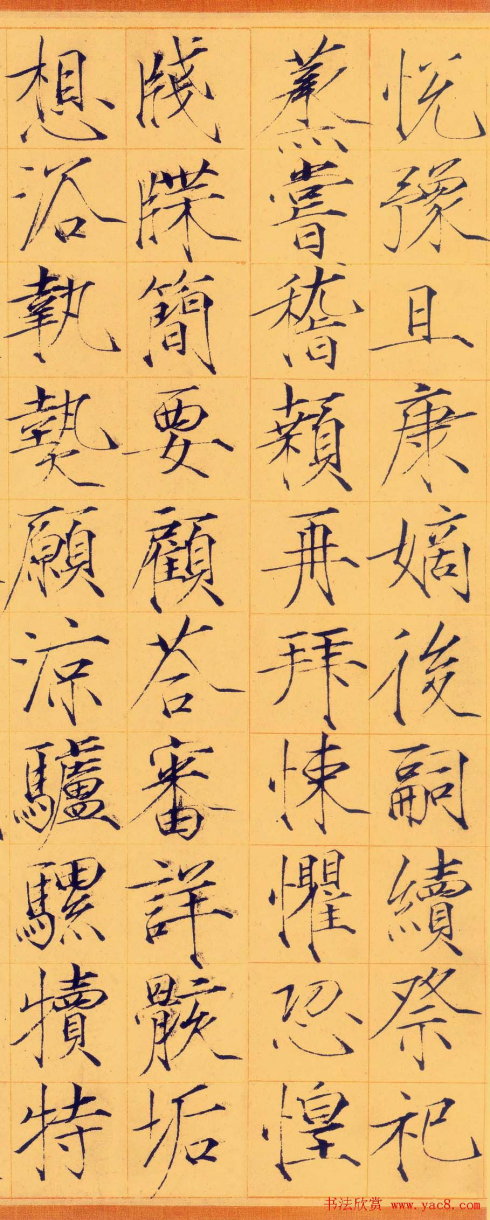 悦豫且康嫡後嗣續祭祀
蒸嘗稽顙再拜悚懼恐惶
牋牒簡要顧荅審詳骸垢
想浴執熱願涼驢騾犢特
书法欣赏 www.yac8.com